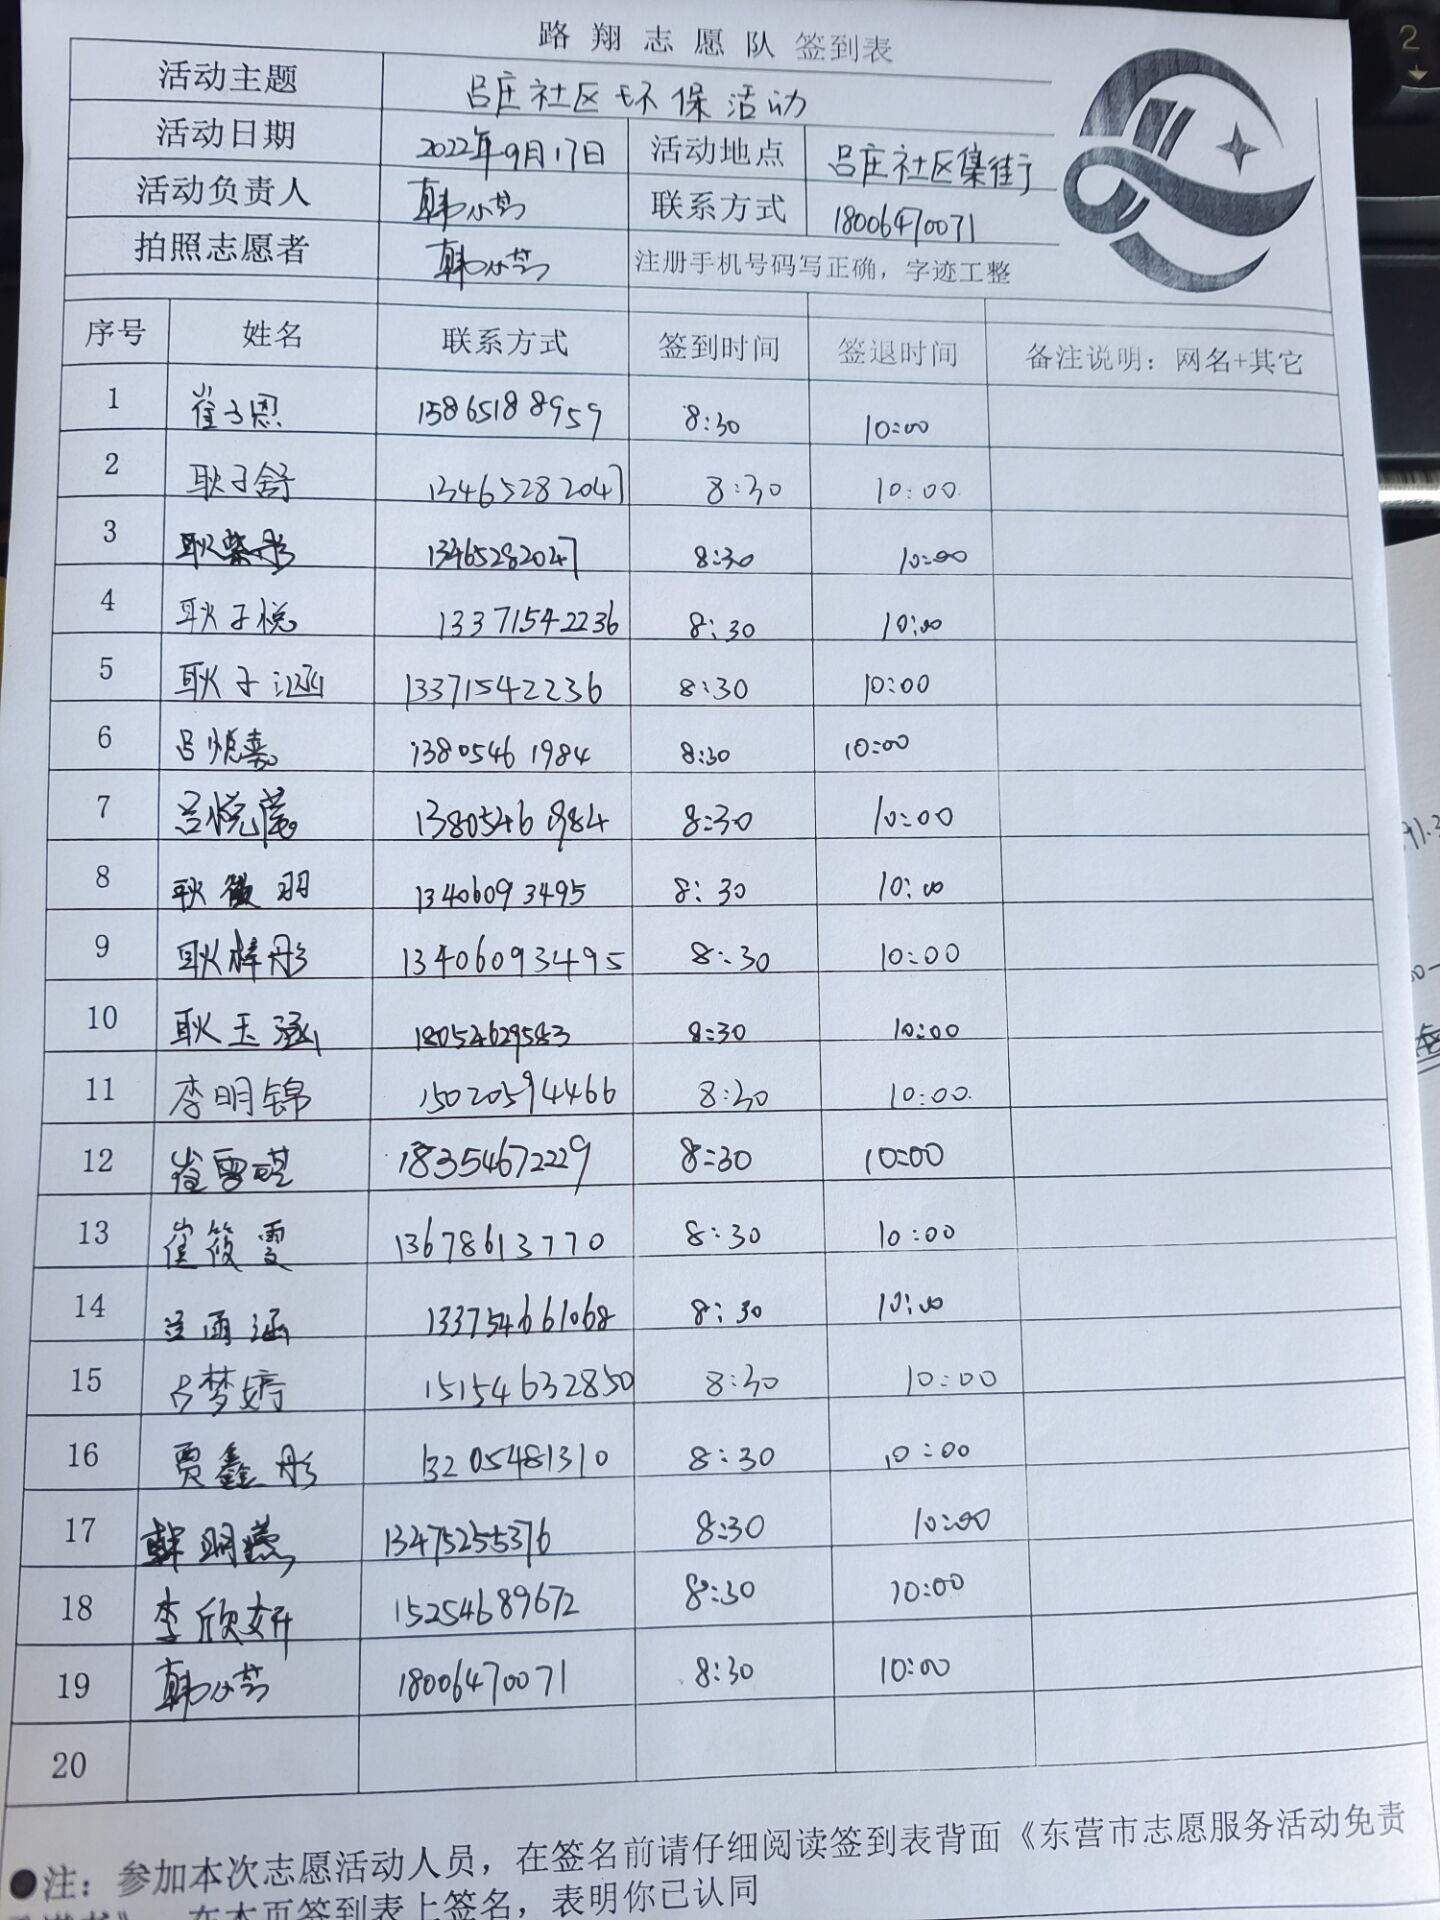 路翔志愿队 签到表
活动主题 吕庄社区环保活动
活动日期 2022年9月17日 活动地点 吕庄社区集街
活动负责人 韩小芸 联系方式 18006470071
拍照志愿者 韩小芸 注册手机号码写正确，字迹工整
序号 姓名 联系方式 签到时间 签退时间 备注说明：网名+其它
1 崔子恩 15865188959 8:30 10:00
2 耿子舒 13465282047 8:30 10:00
3 耿紫彤 13465282047 8:30 10:00
4 耿子悦 13371542236 8:30 10:00
5 耿子涵 13371542236 8:30 10:00
6 吕悦嘉 13805461984 8:30 10:00
7 吕悦 1380546 984 8:30 10:00
8 耿 羽 13406093495 8:30 10:00
9 耿梓彤 13406093495 8:30 10:00
10 耿玉涵 18054629583 8:30 10:00
11 李明锦 15020594466 8:30 10:00
12 崔雪琪 18354672229 8:30 10:00
13 崔筱雯 13678613770 8:30 10:00
14 雨涵 133754661068 8:30 10:00
15 吕梦婷 15154632850 8:30 10:00
16 贾鑫彤 13205481310 8:30 10:00
17 韩明 13475255376 8:30 10:00
18 李欣妍 15254689672 8:30 10:00
19 韩小芸 18006470071 8:30 10:00
20
●注：参加本次志愿活动人员，在签名前请仔细阅读签到表背面《东营市志愿服务活动免责
在本页签到表上签名，表明你已认同
2